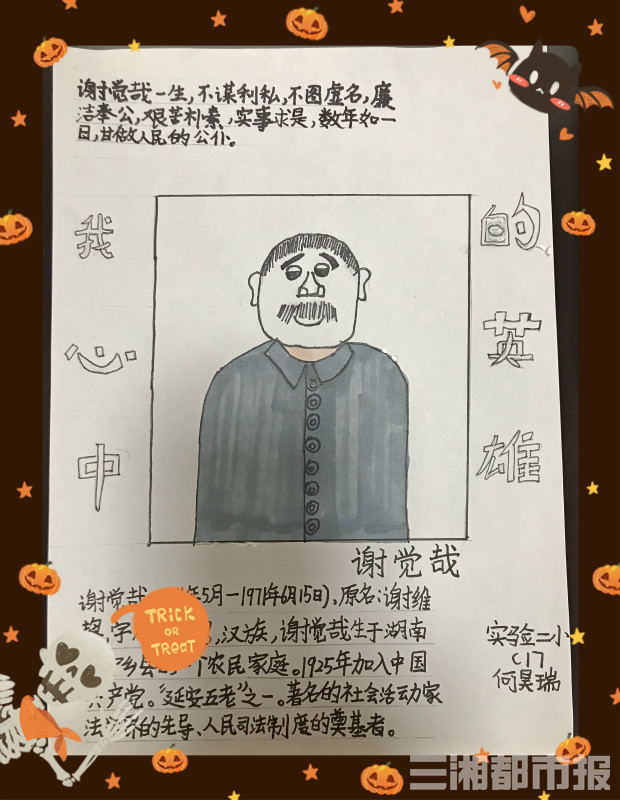 谢觉哉一生，不谋利私，不图虚名，廉
洁奉公，艰苦朴素，实事求是，数年如一
日，甘做人民的公仆。
我心中
的英雄
谢觉哉
谢觉 年5月-1971年6月15日)、原名：谢维
字 ，汉族，谢觉哉生于湖南
乡 个农民家庭。1925年加入中国
共产党。“延安五老”之一。著名的社会活动家
法 界的先导、人民司法制度的奠基者。
TRICK
OR
TREAT
实验二小
C17
何昊瑞
三湘都市报